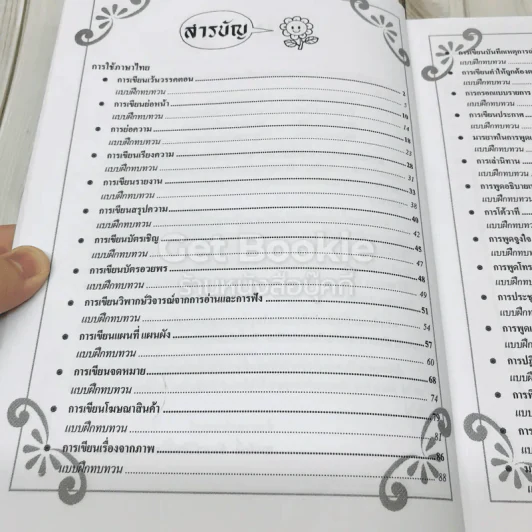 สารบัญ
การใช้ภาษาไทย
การเขียนเว้นวรรคตอน 1
แบบฝึกทบทวน
การเขียนย่อหน้า
แบบฝึกทบทวน
การย่อความ 14
แบบฝึกทบทวน
การเขียนเรียงความ
แบบฝึกทบทวน 28
การเขียนรายงาน 31
แบบฝึกทบทวน 33
การเขียนสรุปความ 38
แบบฝึกทบทวน 40
การเขียนบัตรเชิญ 42
แบบฝึกทบทวน 45
การเขียนบัตรอวยพร 47
แบบฝึกทบทวน 48
49
การเขียนวิพากษ์วิจารณ์จากการอ่านและการฟัง 51
แบบฝึกทบทวน 54
การเขียนแผนที่ แผนผัง 57
แบบฝึกทบทวน 60
การเขียนจดหมาย 68
แบบฝึกทบทวน 74
การเขียนโฆษณาสินค้า 79
แบบฝึกทบทวน 81
การเขียนเรื่องจากภาพ 86
แบบฝึกทบทวน 88
Get Bookie
ร้านหนังสือบุ๊คกี้
การเขียนบันทึกเหตุการ
แบบฝึกทบทวน
การเขียนคำให้ถูกต้อง
แบบฝึกทบทวน
การกรอกแบบรายการ
แบบฝึกทบทวน
การเขียนประกาศ
แบบฝึกทบทวน
มารยาทในการพูด
แบบฝึกทบทวน
การเล่านิทาน
แบบฝึกทบทวน
การพูดอธิบาย
แบบฝึกทบทวน
การโต้วาที
แบบฝึกทบทวน
การพูดจูงใจ
แบบฝึกทบ
การพูดโทร
แบบฝึก
การประชุ
แบบฝึก
การพูด
แบบฝึก
การปฏิ
แบบฝึ
แบบฝึ
การ
แบบ